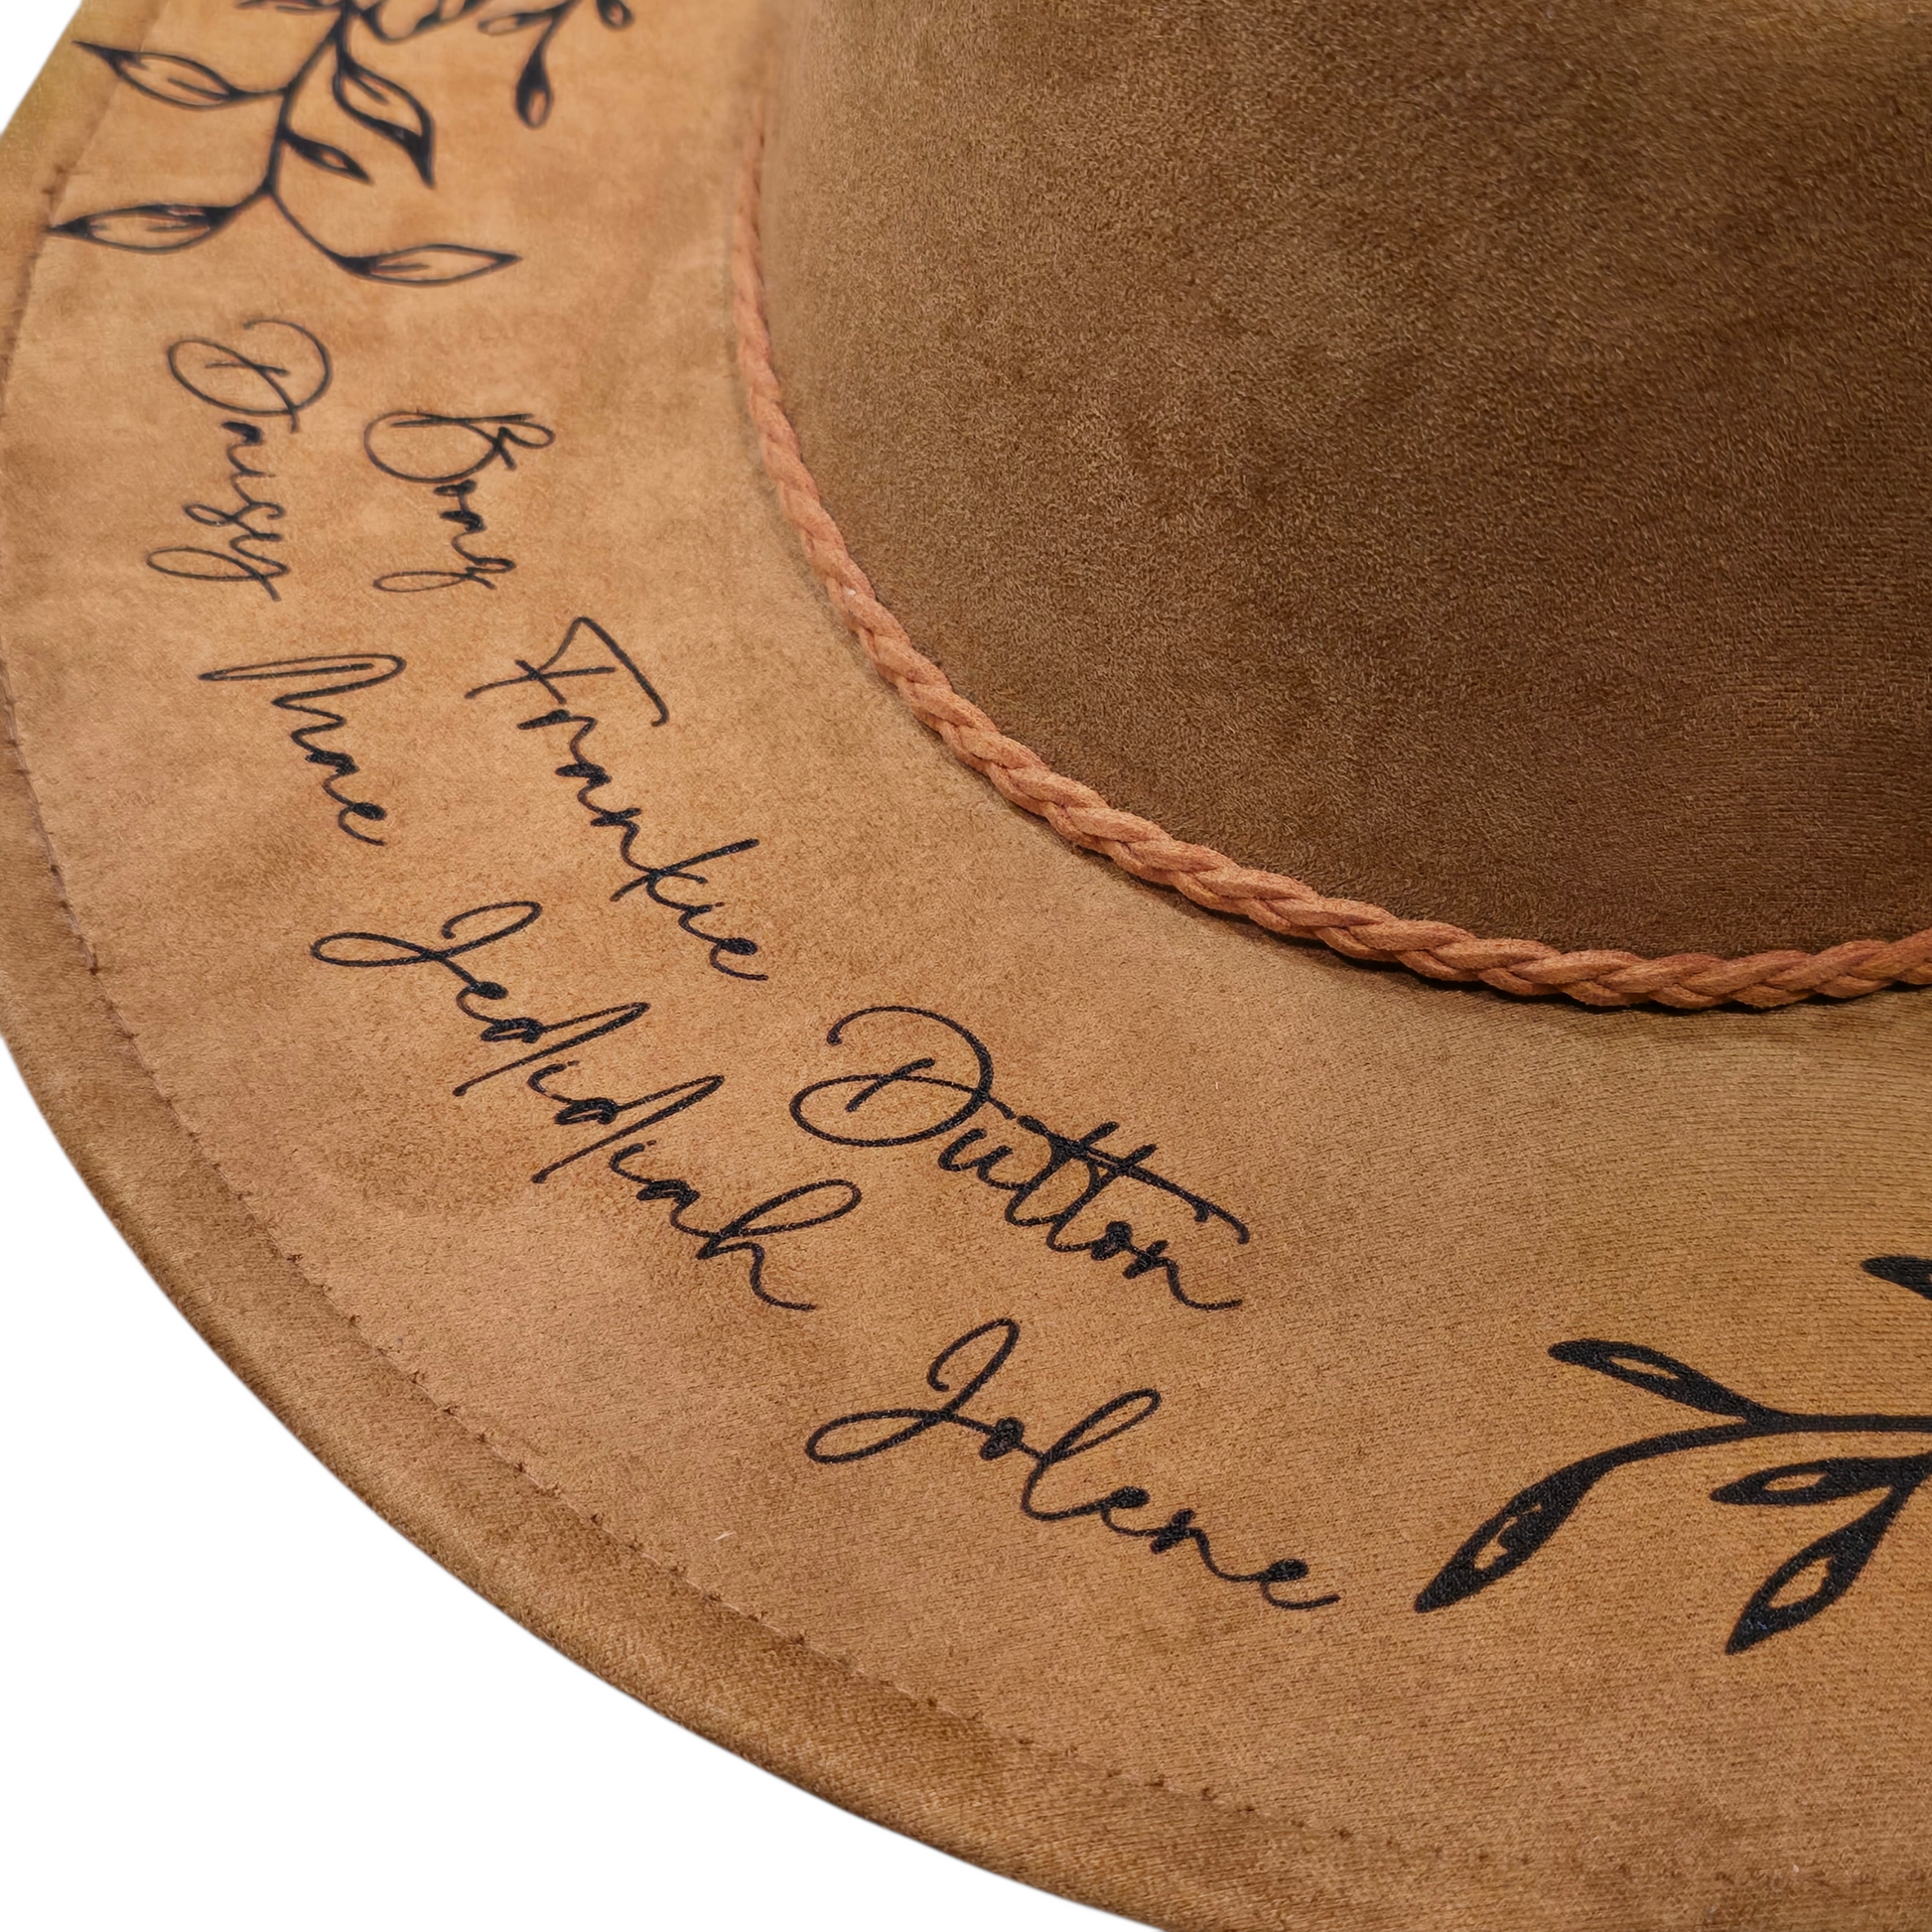 Bong Frankie Dutton
Daisy Mae Jedidiah Jolene